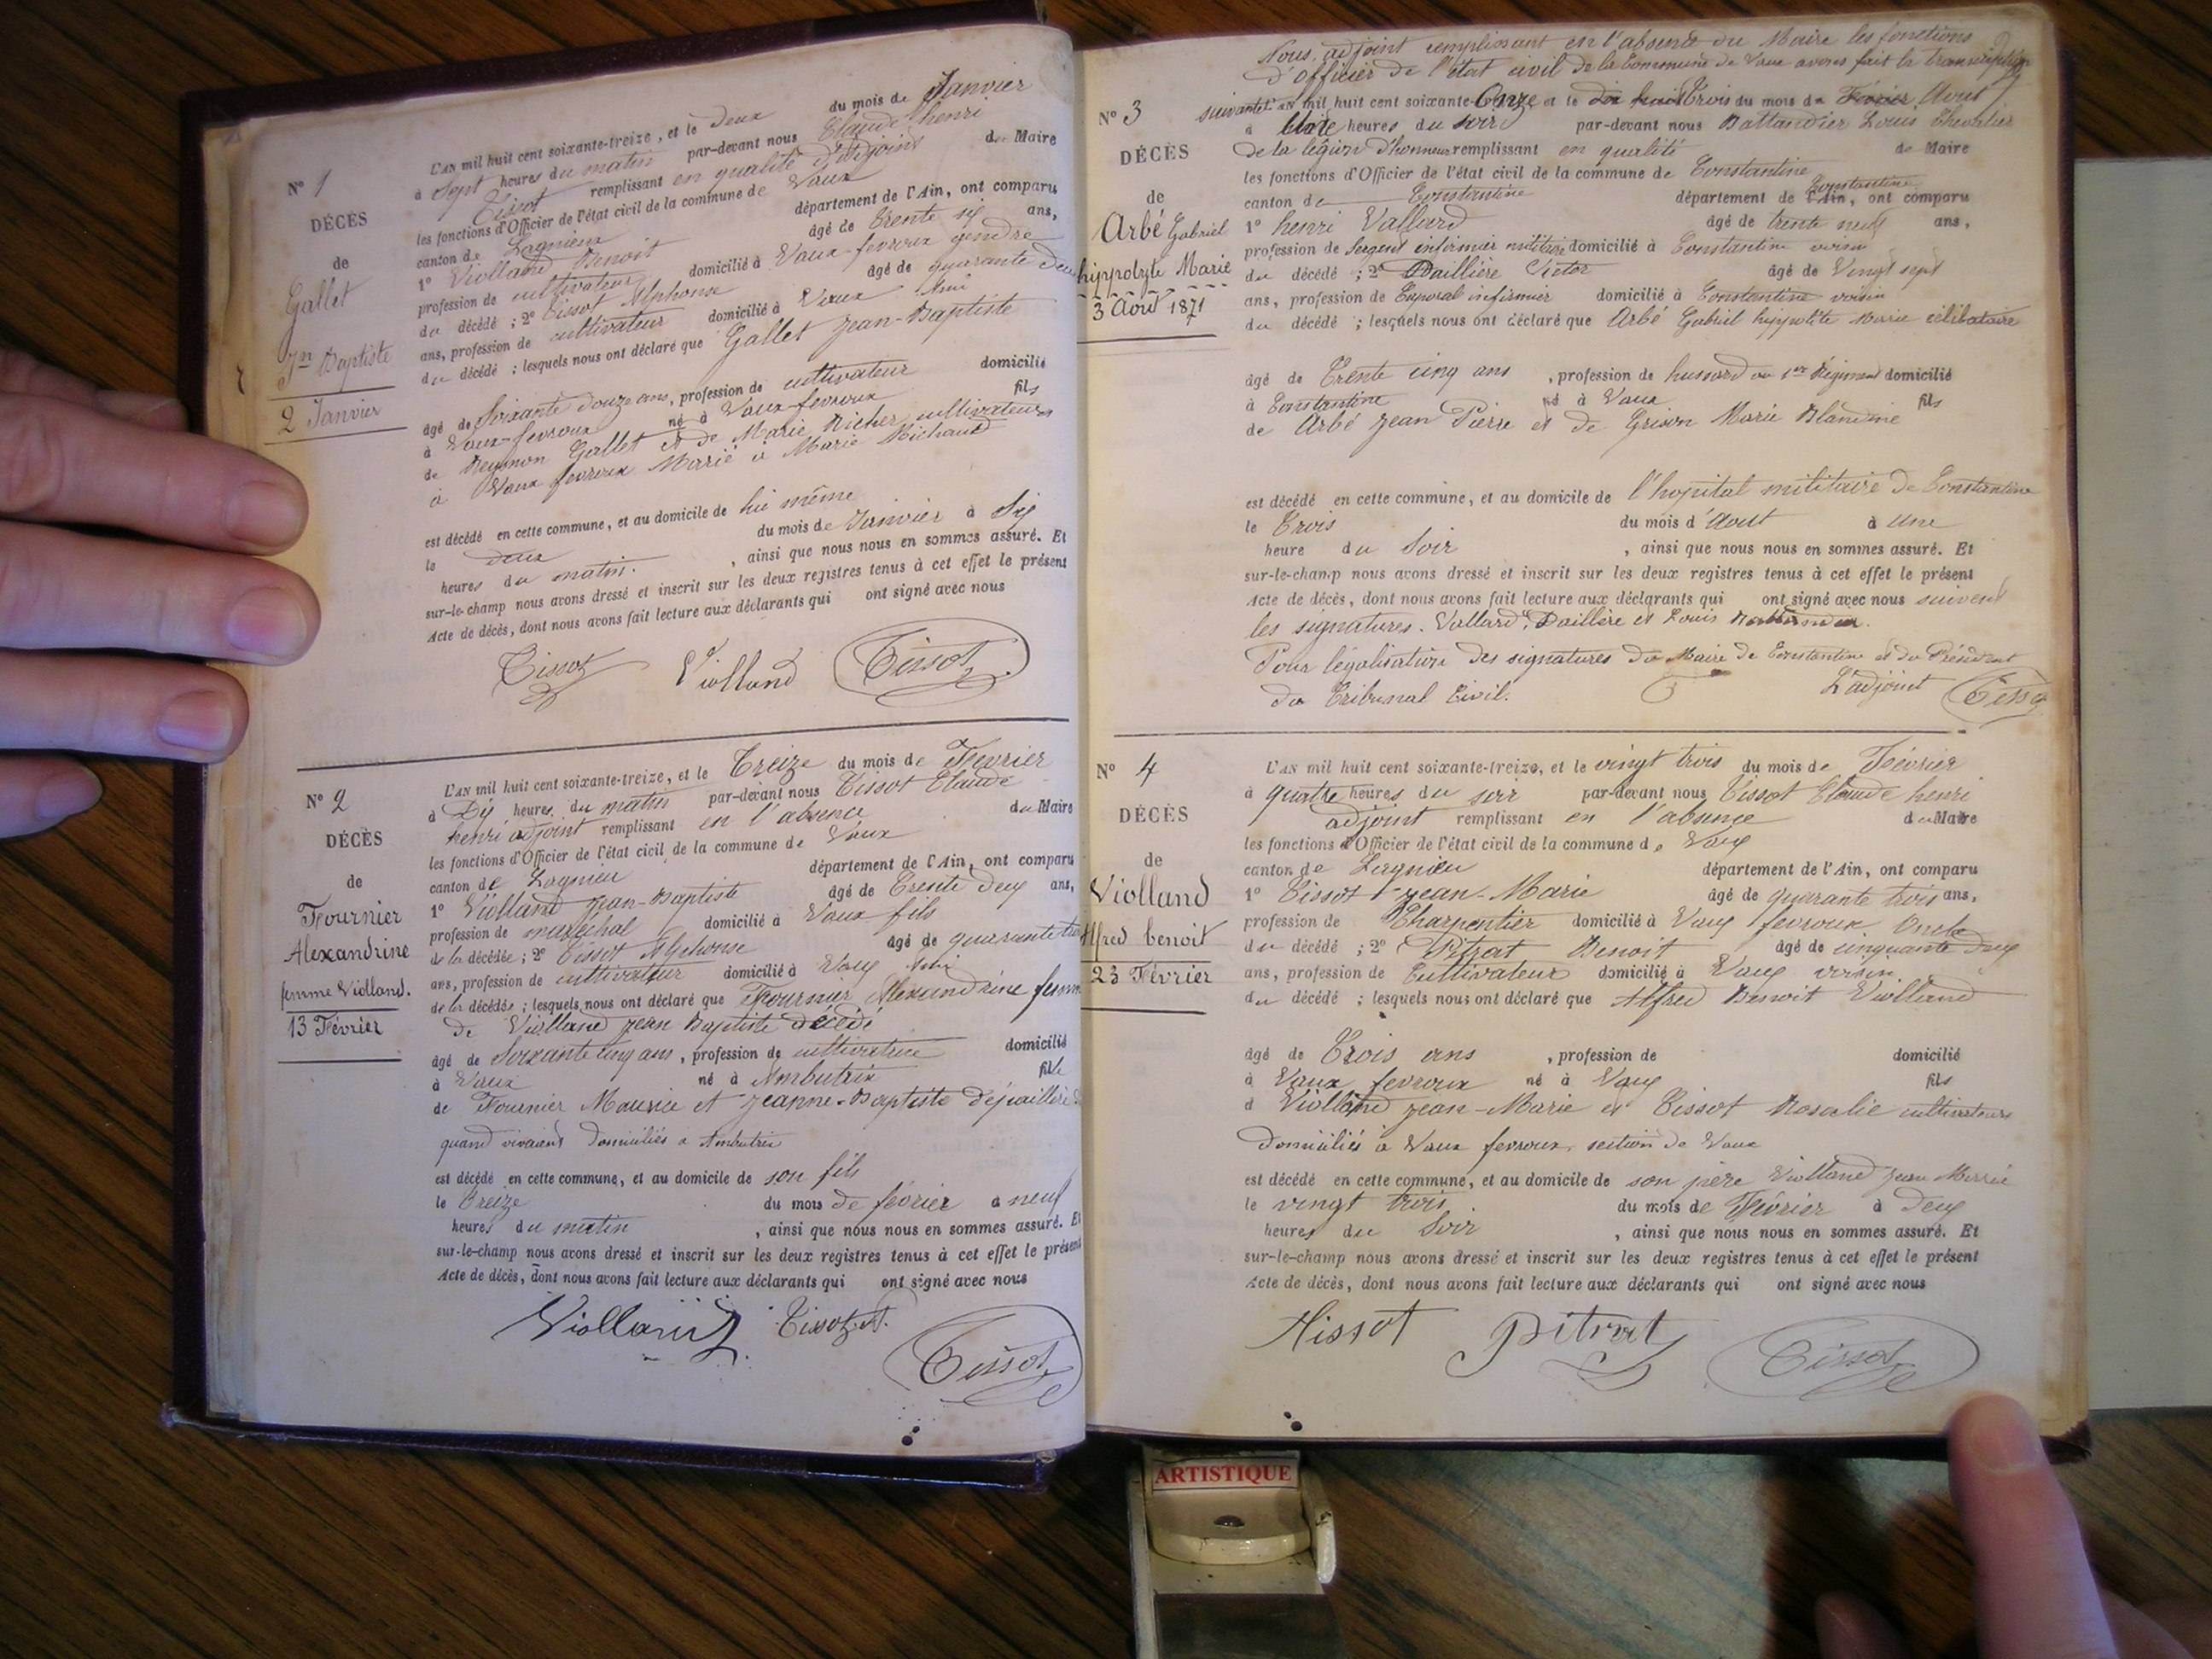 N° 1
DÉCÈS
de
Gallet
Jn Baptiste
2 Janvier
L'AN mil huit cent soixante-treize, et le Deux du mois de Janvier
à Sept heures du matin par-devant nous Claude henri
Tissot remplissant en qualité d'adjoint de Maire
les fonctions d'Officier de l'état civil de la commune de Vaux
canton de Lagnieu département de l'Ain, ont comparu
1° Violland Benoit âgé de Trente six ans,
profession de cultivateur domicilié à Vaux-fevroux gendre
du décédé ; 2° Tissot Alphonse âgé de quarante deux
ans, profession de cultivateur domicilié à Vaux Ami
du décédé ; lesquels nous ont déclaré que Gallet Jean-Baptiste
âgé de Soixante douze ans, profession de cultivateur domicilié
à Vaux-fevroux né à Vaux-fevroux fils
de Reymon Gallet et de Marie Richer cultivateurs
à Vaux fevroux Marié à Marie Michaud
est décédé en cette commune, et au domicile de lui même
le deux du mois de Janvier à Six
heures du matin. , ainsi que nous nous en sommes assuré. Et
sur-le-champ nous avons dressé et inscrit sur les deux registres tenus à cet effet le présent
Acte de décès, dont nous avons fait lecture aux déclarants qui ont signé avec nous
Tissot Violland Tissot
N° 2
DÉCÈS
de
Fournier
Alexandrine
femme Violland.
13 Février
L'AN mil huit cent soixante-treize, et le Treize du mois de Février
à Dix heures du matin par-devant nous Tissot Claude
henri adjoint remplissant en l'absence du Maire
les fonctions d'Officier de l'état civil de la commune de Vaux
canton de Lagnieu département de l'Ain, ont comparu
1° Violland Jean-Baptiste âgé de Trente Deux ans,
profession de maréchal domicilié à Vaux fils
de la décédée ; 2° Tissot Alphonse âgé de quarante
ans, profession de cultivateur domicilié à Vaux Ami
de la décédée ; lesquels nous ont déclaré que Fournier Alexandrine femme
de Violland Jean Baptiste décédé
âgé de Soixante cinq ans, profession de cultivatrice domicilié
à Vaux né à Ambutrix fille
de Fournier Maurice et Jeanne-Baptiste
quand vivaient Domiciliés à Ambutrix
est décédé en cette commune, et au domicile de son fils
le Treize du mois de février à neuf
heures du matin , ainsi que nous nous en sommes assuré. Et
sur-le-champ nous avons dressé et inscrit sur les deux registres tenus à cet effet le présent
Acte de décès, dont nous avons fait lecture aux déclarants qui ont signé avec nous
Violland Tissot A. Tissot
Nous, adjoint remplissant en l'absence du Maire les fonctions
d'officier de l'état civil de la Commune de Vaux avons fait la transcription
N° 3
DÉCÈS
de
Arbé Gabriel
hippolyte Marie
3 Août 1871
suivante L'AN mil huit cent soixante-Onze et le Trois du mois d Février Aout
à Une heures du soir par-devant nous Battandier Louis Chevalier
De la légion D'honneur remplissant en qualité de Maire
les fonctions d'Officier de l'état civil de la commune de Constantine
canton de Constantine département de l'Ain, Constantine ont comparu
1° henri Vallard âgé de trente neuf ans,
profession de Sergent infirmier militaire domicilié à Constantine voisin
du décédé ; 2° Daillière Victor âgé de Vingt sept
ans, profession de Caporal infirmier domicilié à Constantine voisin
du décédé ; lesquels nous ont déclaré que Arbé Gabriel hippolite Marie célibataire
âgé de Trente cinq ans , profession de hussard au 1er Régiment domicilié
à Constantine né à Vaux fils
de Arbé Jean Pierre et de Grison Marie Blandine
est décédé en cette commune, et au domicile de l'hopital militaire de Constantine
le Trois du mois d'Aout à une
heure du Soir , ainsi que nous nous en sommes assuré. Et
sur-le-champ nous avons dressé et inscrit sur les deux registres tenus à cet effet le présent
Acte de décès, dont nous avons fait lecture aux déclarants qui ont signé avec nous suivent
les signatures. Vallard, Daillère et Louis Battandier.
Pour légalisation des signatures du Maire de Constantine et du Président
du Tribunal Civil. L'adjoint Tissot
N° 4
DÉCÈS
de
Violland
Alfred benoit
23 Février
L'AN mil huit cent soixante-treize, et le vingt trois du mois de Février
à quatre heures du soir par-devant nous Tissot Claude henri
adjoint remplissant en l'absence du Maire
les fonctions d'Officier de l'état civil de la commune de Vaux
canton de Lagnieu département de l'Ain, ont comparu
1° Tissot Jean-Marie âgé de quarante trois ans,
profession de Charpentier domicilié à Vaux fevroux Oncle
du décédé ; 2° Pitrat Benoit âgé de cinquante deux
ans, profession de Cultivateur domicilié à Vaux voisin
du décédé ; lesquels nous ont déclaré que Alfred Benoit Violland
âgé de Trois ans , profession de domicilié
à Vaux fevroux né à Vaux fils
d Violland Jean-Marie et Tissot Rosalie cultivateurs
Domiciliés à Vaux fevroux, section de Vaux
est décédé en cette commune, et au domicile de son père Violland Jean Marie
le vingt trois du mois de Février à Deux
heures du Soir , ainsi que nous nous en sommes assuré. Et
sur-le-champ nous avons dressé et inscrit sur les deux registres tenus à cet effet le présent
Acte de décès, dont nous avons fait lecture aux déclarants qui ont signé avec nous
Tissot Pitrat Tissot
ARTISTIQUE